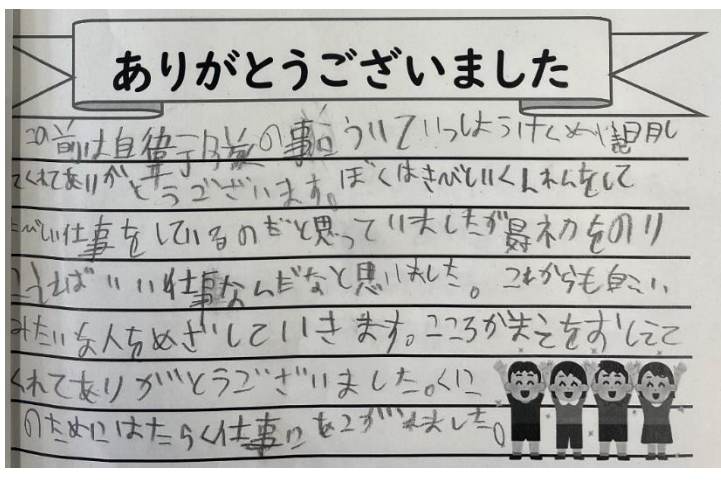 ありがとうございました
この前は自衛隊の事についていっしょうけんめい説明し
てくれてありがとうございます。ぼくはきびしいくんれんをして
きびしい仕事をしているのだと思っていましたが をのり
こえればいい仕事なんだなと思いました。これからも
みたいな人をめざしていきます。こころがまえをおしえて
くれてありがとうございました。くに
のためにはたらく仕事にあこがれました。